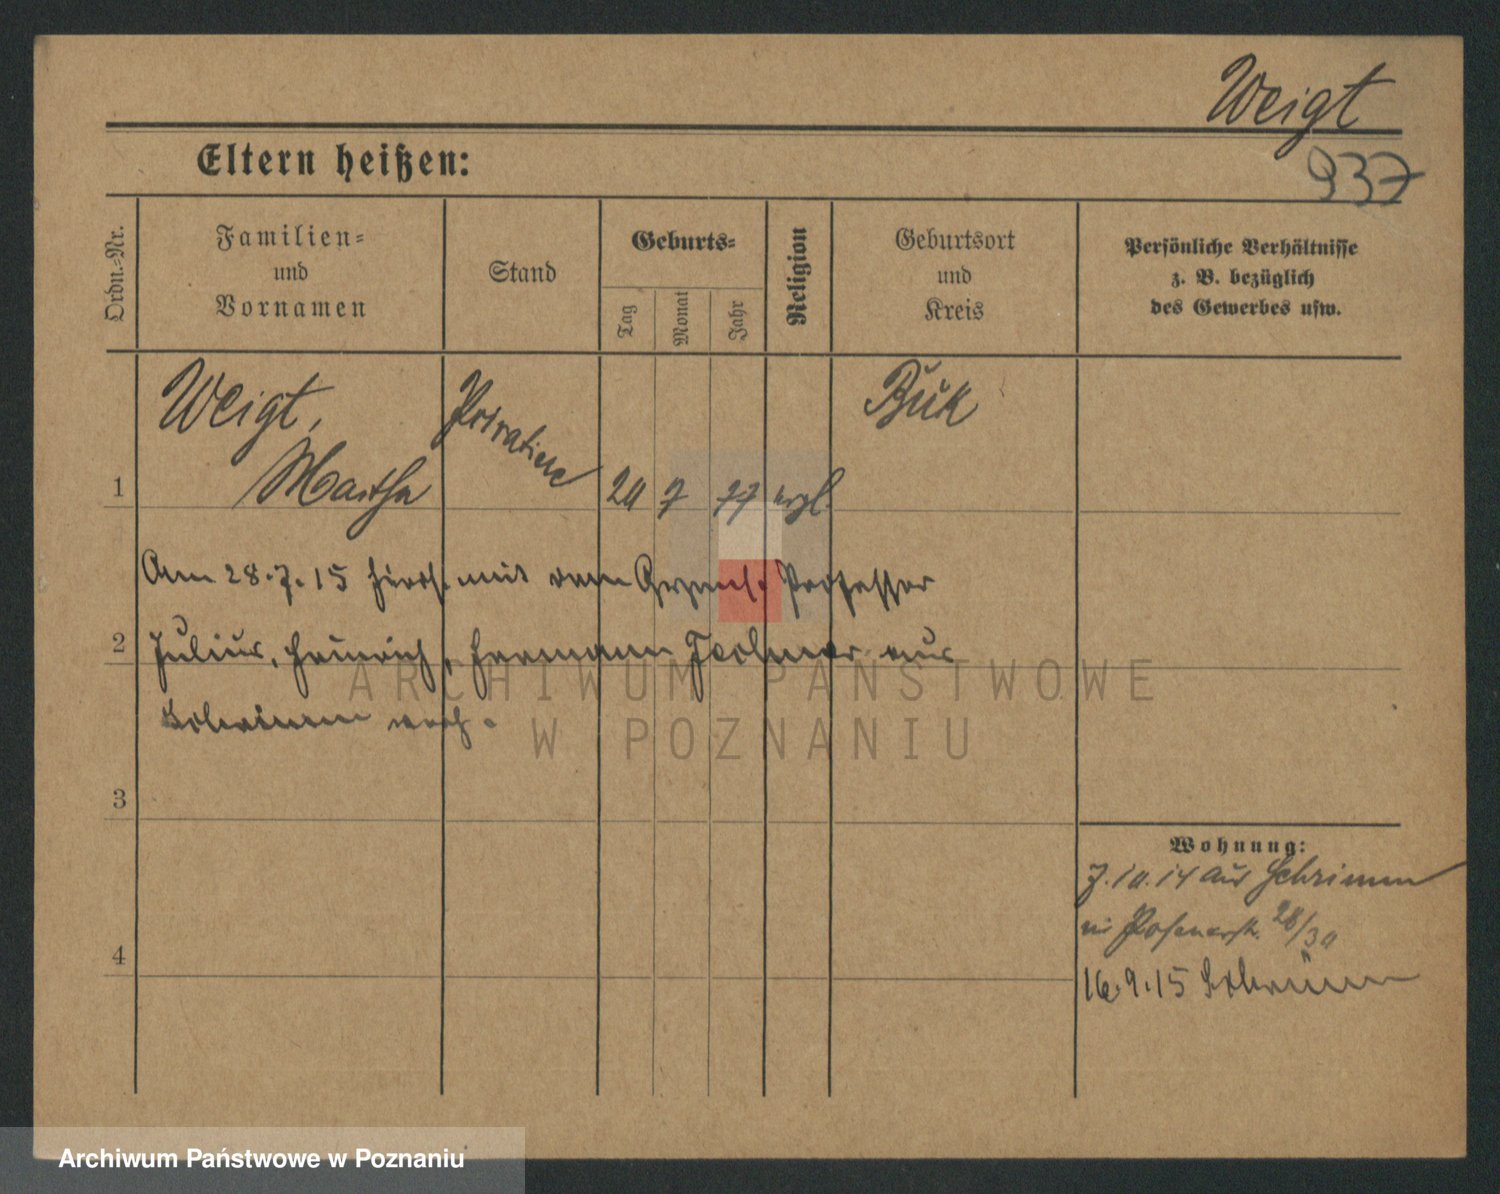 Weigt
937
Eltern heißen:
Ordn.-Nr.
Familien-
und
Vornamen
Stand
Geburts-
Tag
Monat
Jahr
Religion
Geburtsort
und
Kreis
Persönliche Verhältnisse
z. B. bezüglich
des Gewerbes usw.
1
Weigt,
Martha
Privatiere
20 7 77 evgl.
Buk
Am 28.7.15 hier mit dem Professor
2
Julius, Heinrich, Hermann aus
Schrimm verh.
3
4
Wohnung:
7.10.14 aus Schrimm
in Posenerstr. 28/30
16.9.15 Schrimm
ARCHIWUM PAŃSTWOWE
W POZNANIU
Archiwum Państwowe w Poznaniu